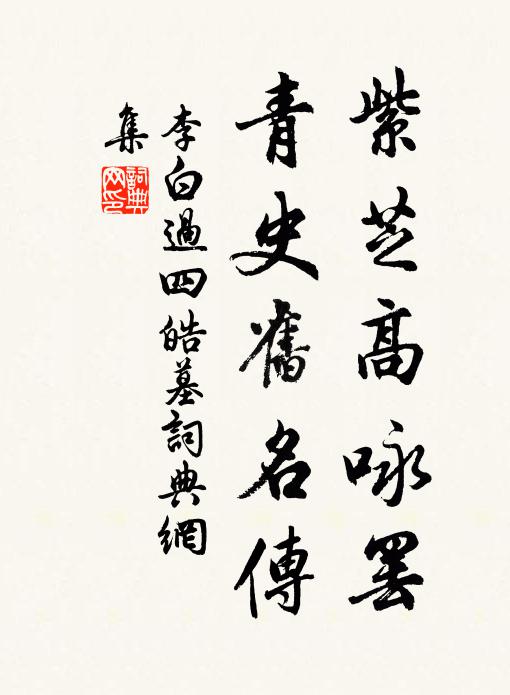 紫芝高咏罢
青史舊名傳
李白過四皓墓詞典網
集
詞典
网印